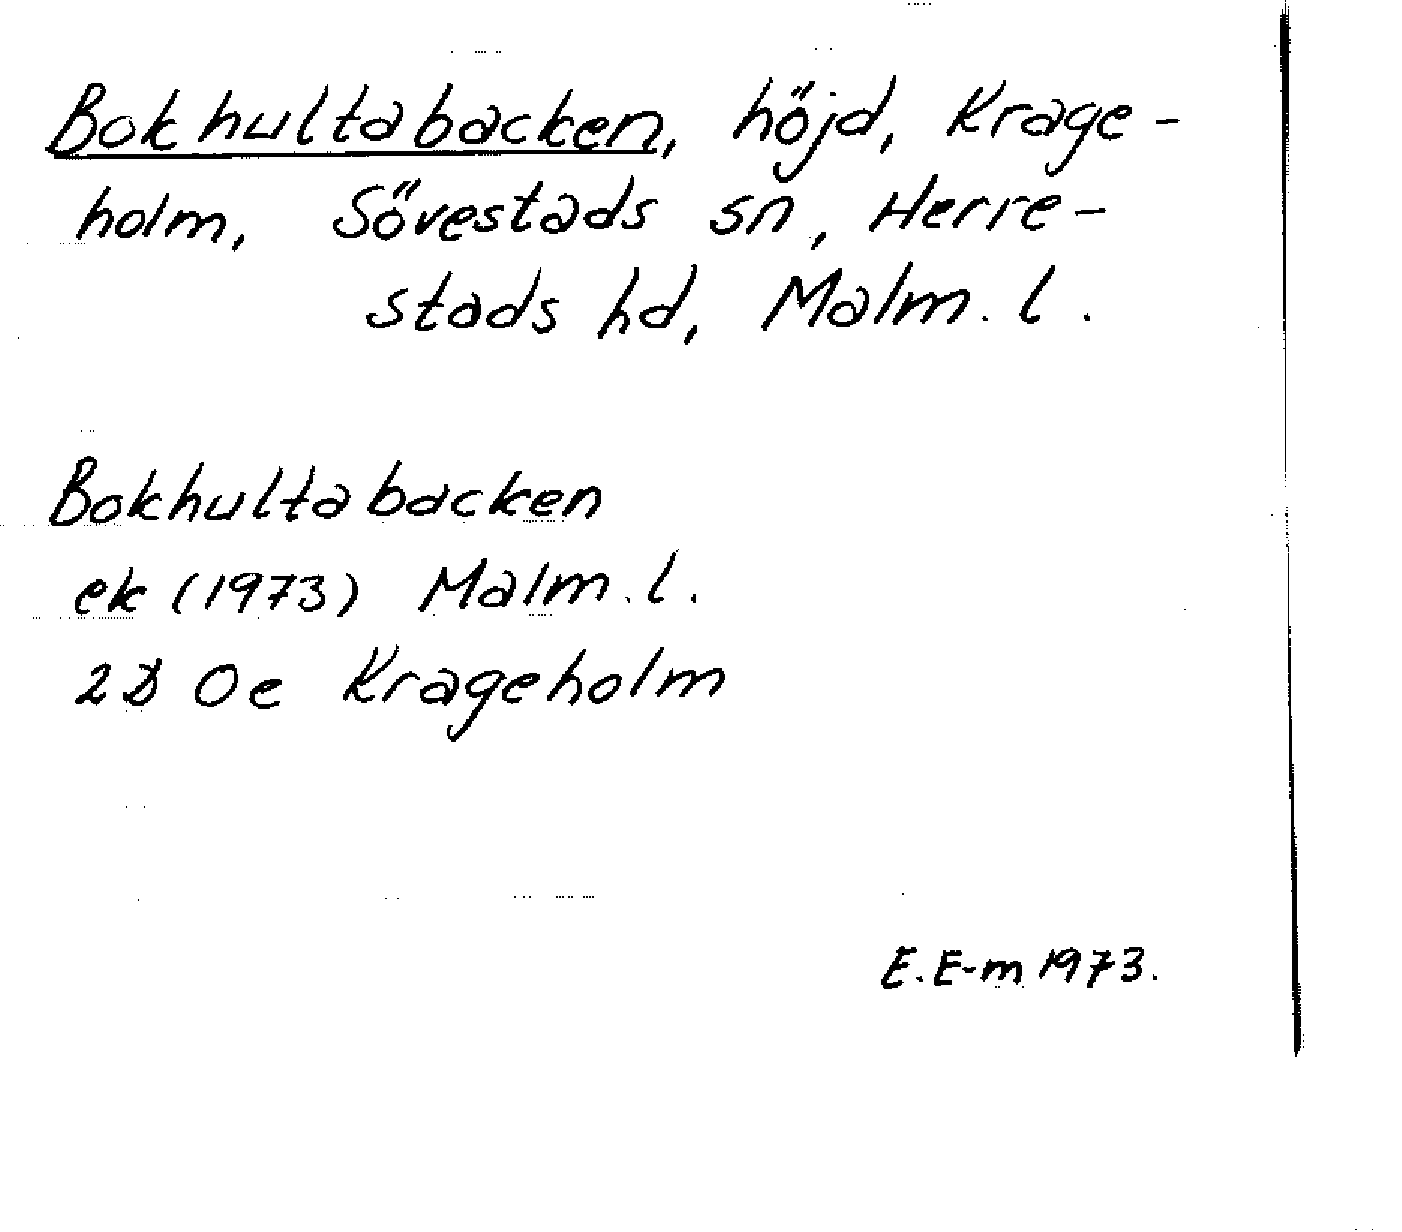 Bokhultabacken, höjd, Krage-
holm, Sövestads sn, Herre-
stads hd, Malm. l.
Bokhultabacken
ek (1973) Malm. l.
2D 0e Krageholm
E. E-m 1973.